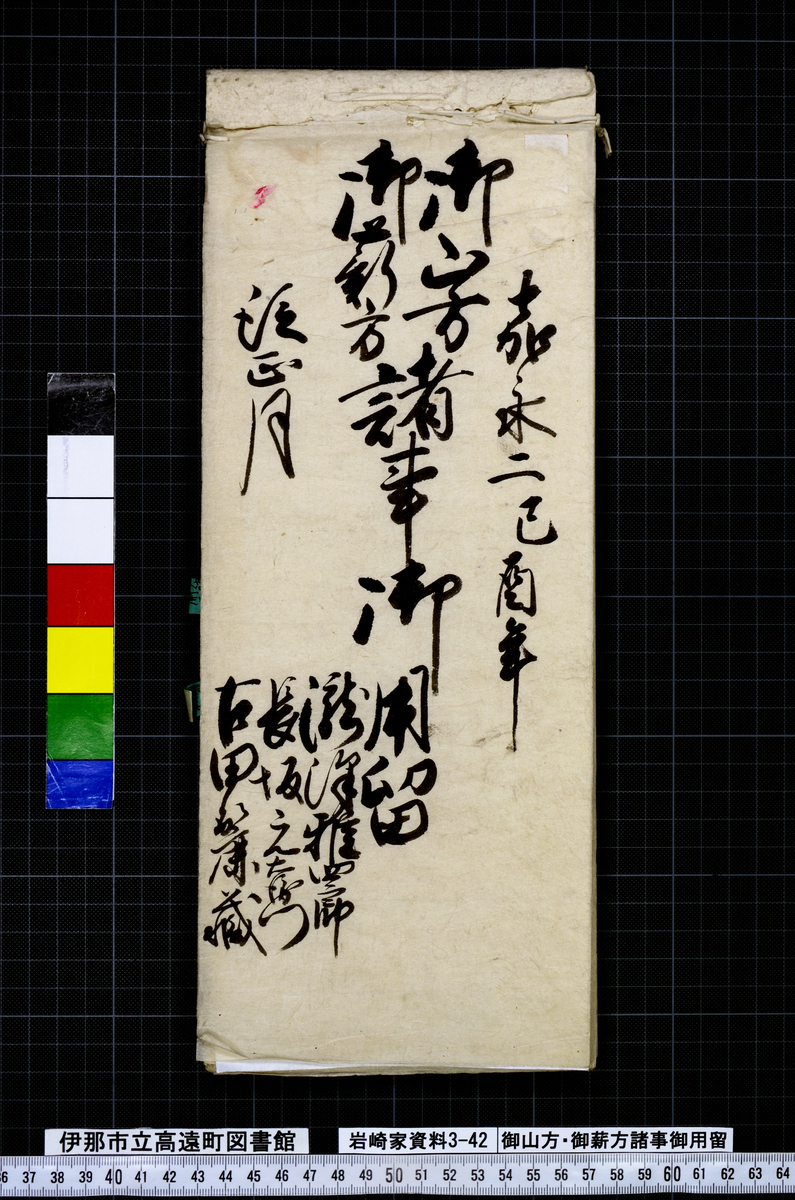 嘉永二己酉年
御山方
御薪方
諸事御用留
従正月
瀧澤雅四郎
長坂元右衛門
古田
藏
伊那市立高遠町図書館
岩崎家資料3-42
御山方・御薪方諸事御用留
36 37 38 39 40 41 42 43 44 45 46 47 48 49 50 51 52 53 54 55 56 57 58 59 60 61 62 63 64